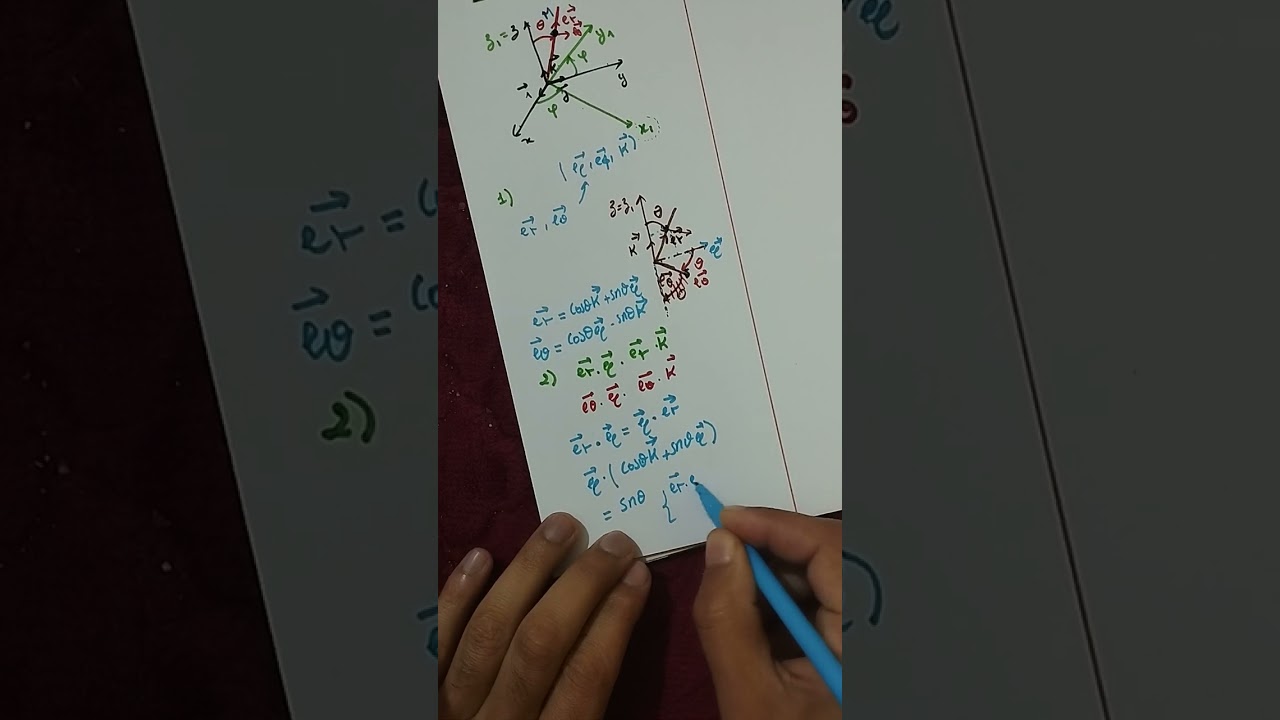 z₁=z θ M e⃗r
e⃗θ y₁
φ
i⃗ j⃗ y
φ
x x₁
(e⃗ρ, e⃗φ, k⃗)
1)
e⃗r, e⃗θ
z=z₁ θ
k⃗ e⃗r
e⃗ρ
θ
e⃗θ
e⃗r = cosθ k⃗ + sinθ e⃗ρ
e⃗θ = cosθ e⃗ρ - sinθ k⃗
2) e⃗r · e⃗ρ · e⃗r · k⃗
e⃗θ · e⃗ρ · e⃗θ · k⃗
e⃗r · e⃗ρ = e⃗ρ · e⃗r
e⃗ρ · (cosθ k⃗ + sinθ e⃗ρ)
= sinθ { e⃗r · e